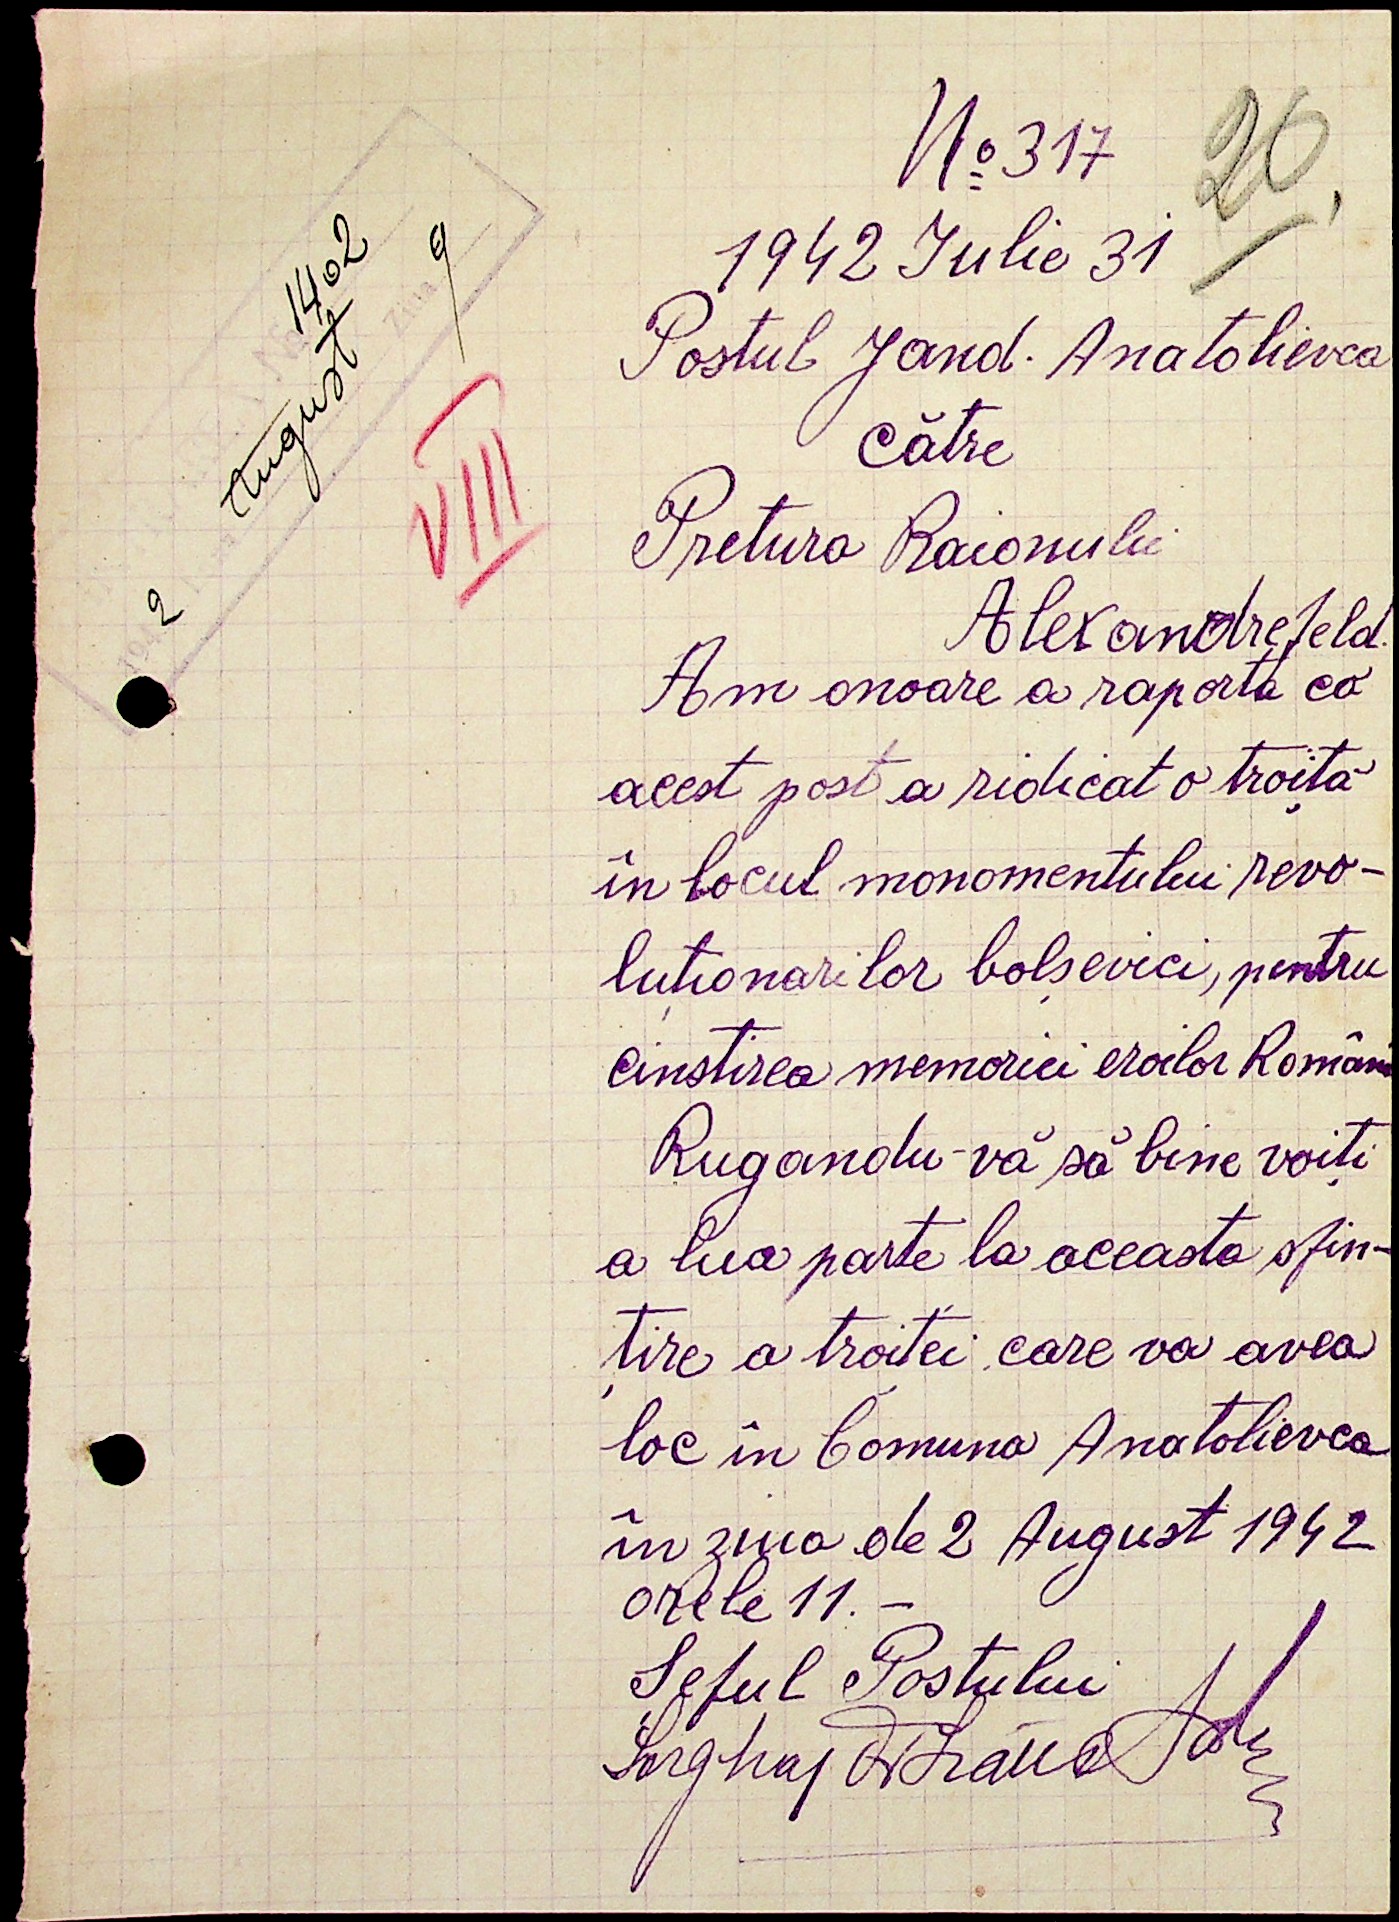 No 317
20,
1942 Iulie 31
Postul Jand. Anatolievca
către
Pretura Raionului
Alexandrefeld.
Am onoare a raporta că
acest post a ridicat o troiță
în locul monomentului revo-
luționarilor bolșevici, pentru
cinstirea memoriei eroilor Români
Rugandu-vă să bine voiți
a lua parte la aceasta sfin-
țire a troiței care va avea
loc în Comuna Anatolievca
în ziua de 2 August 1942
orele 11. –
Șeful Postului
1402
August
Ziua 9
1942
VIII